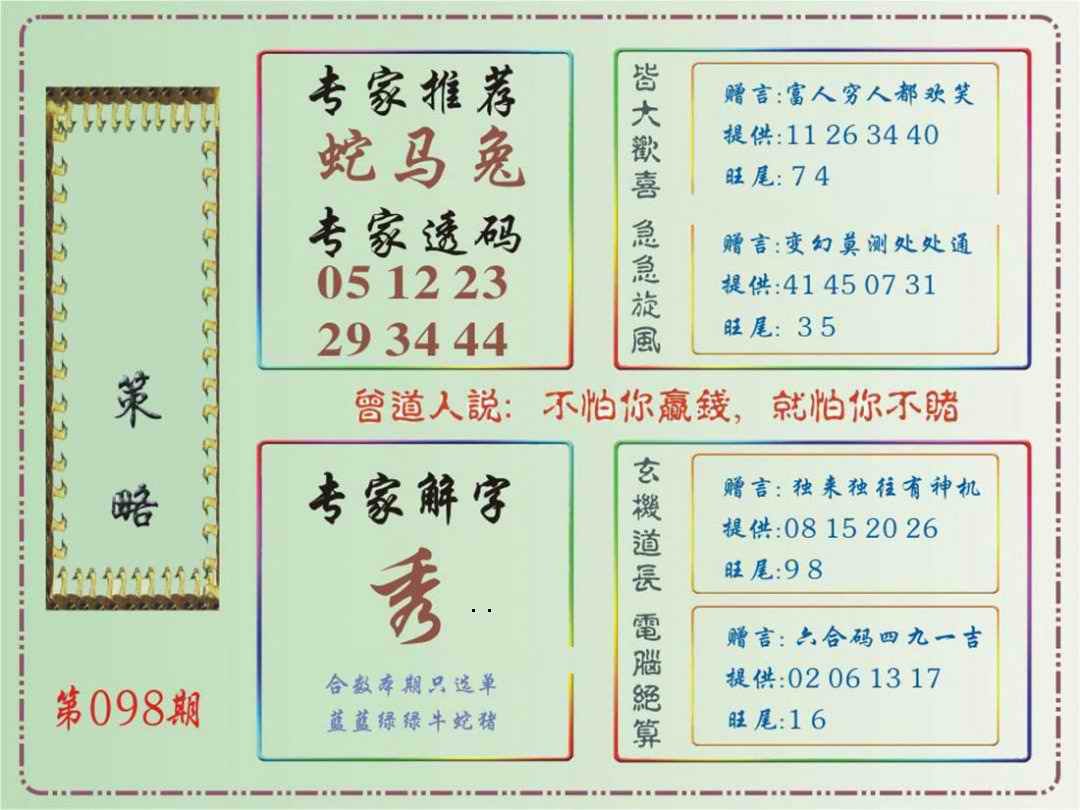 策略
第098期
专家推荐
蛇马兔
专家透码
05 12 23
29 34 44
皆大歡喜
赠言:富人穷人都欢笑
提供:11 26 34 40
旺尾: 7 4
急急旋風
赠言:变幻莫测处处通
提供:41 45 07 31
旺尾: 3 5
曾道人説: 不怕你贏錢, 就怕你不賭
专家解字
秀
合数本期只选单
蓝蓝绿绿牛蛇猪
玄機道長
赠言: 独来独往有神机
提供:08 15 20 26
旺尾:9 8
電腦絕算
赠言: 六合码四九一吉
提供:02 06 13 17
旺尾:1 6